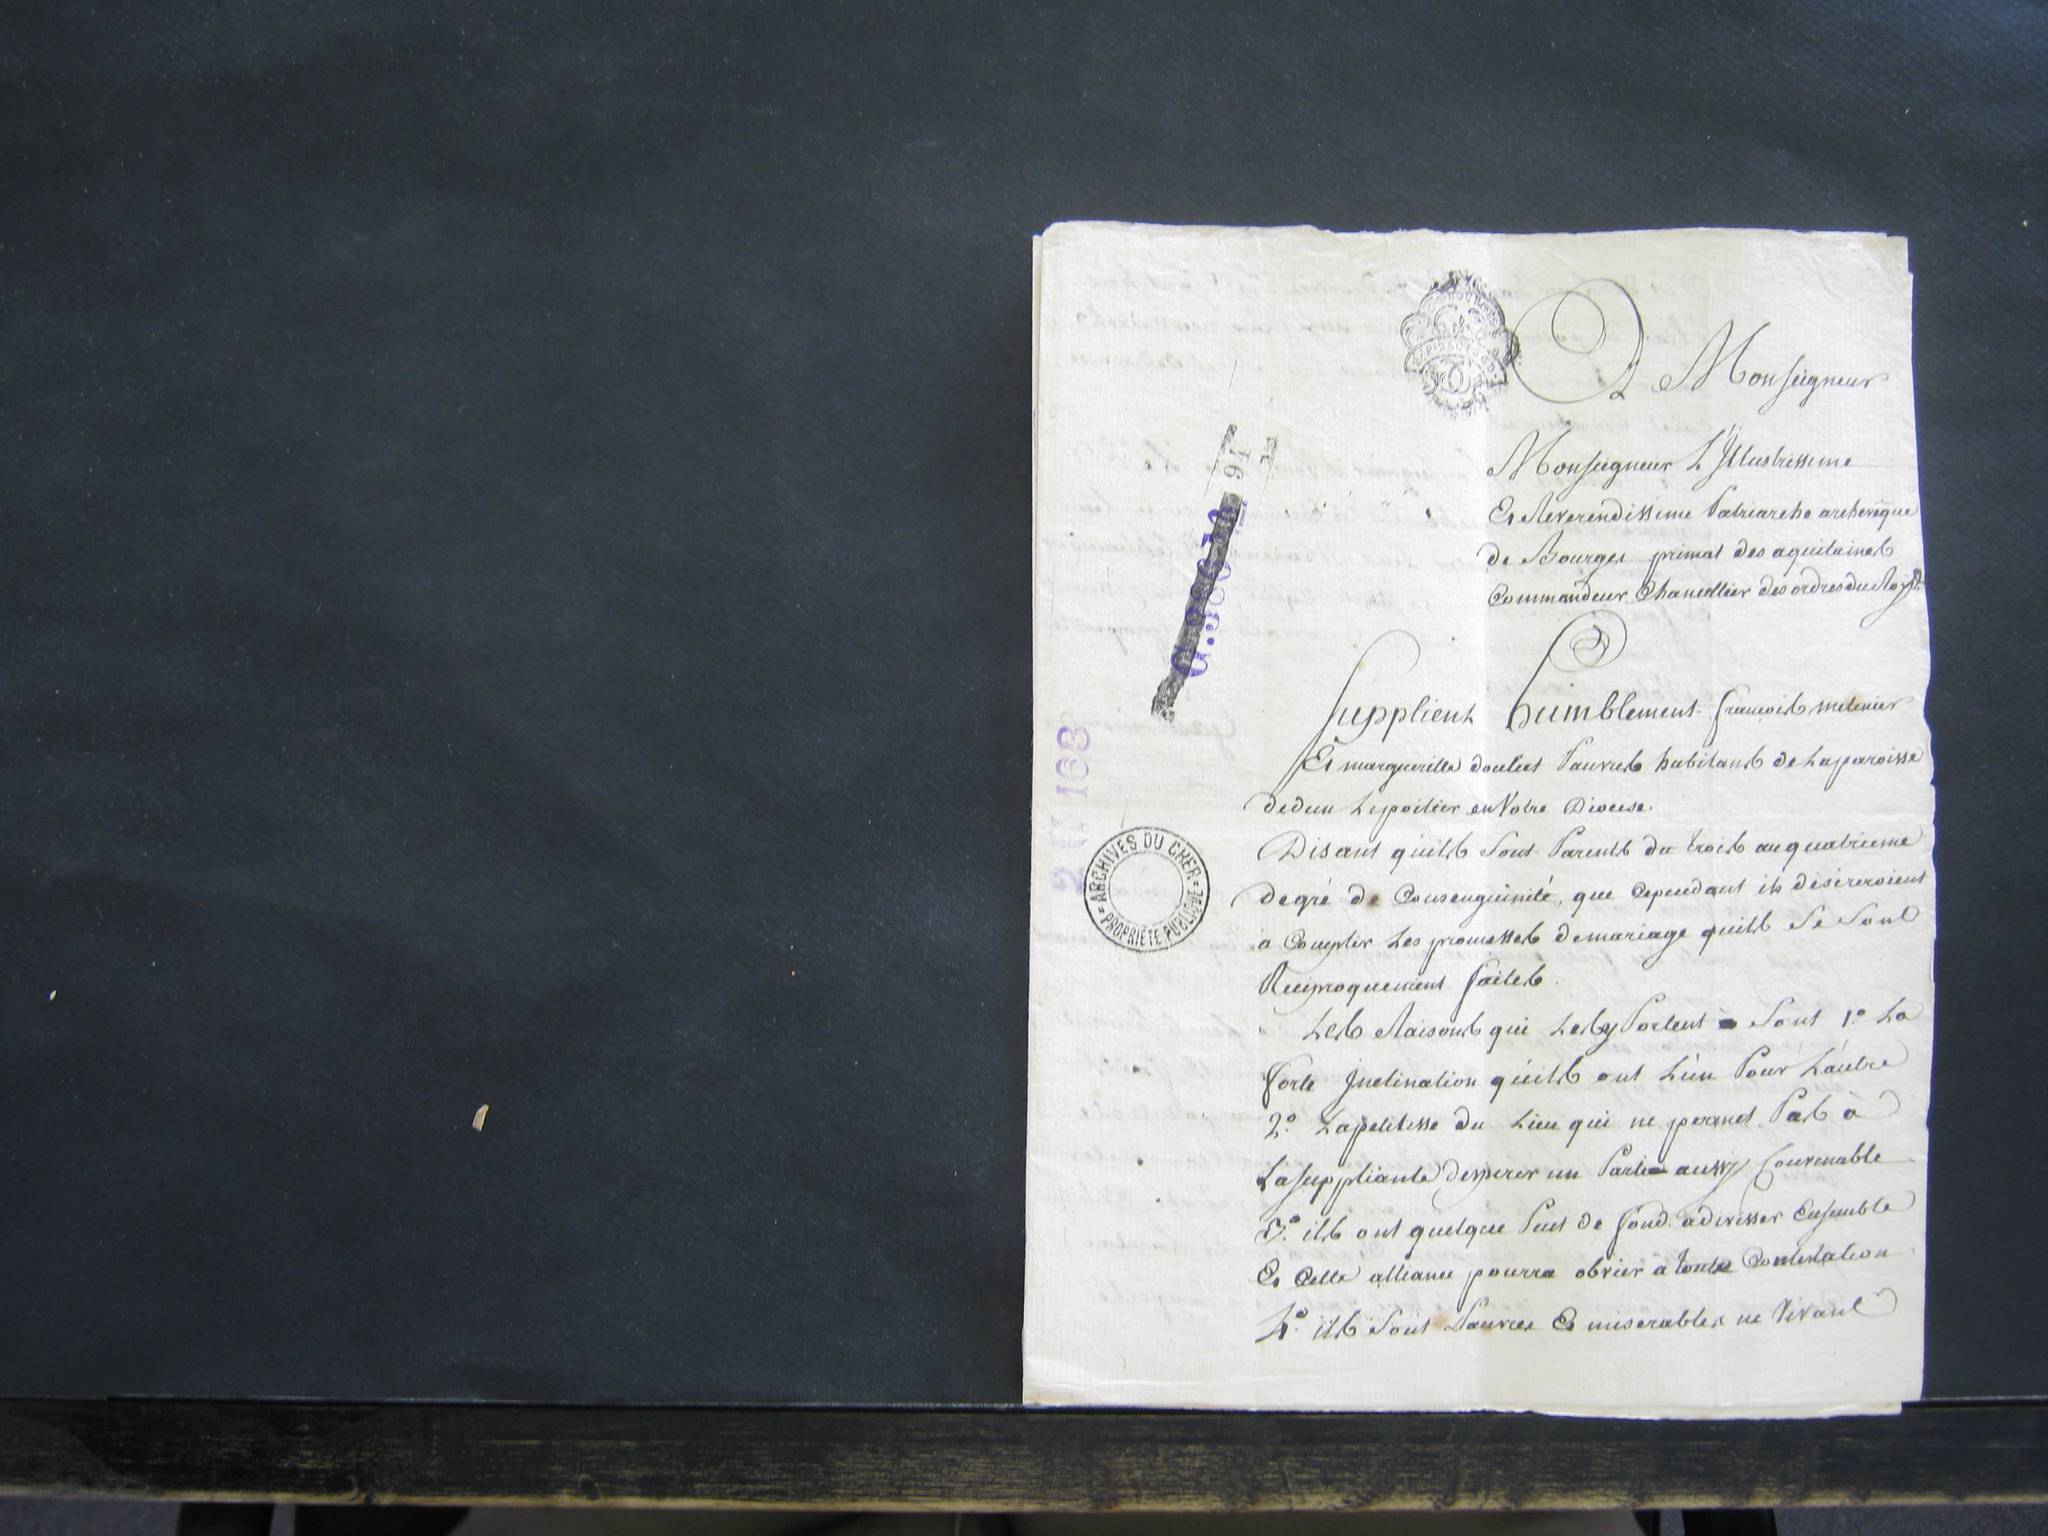 A Monseigneur
Monseigneur L'Illustrissime
Et Reverendissime Patriarche archevêque
de Bourges primat des aquitaines
Commandeur Chancellier des ordres du Roy
Supplient humblement francois metenier
Et margueritte doulcet Pauvres habitants de La paroisse
de dun Le poitier en Votre Diocese.
Disant quils sont Parents du trois au quatrieme
degré de Consenguinité, que cependant ils desireroient
a Complir Les promesses de mariage quils Se Sont
Reciproquement faites.
Les Raisons qui Les y Portent Sont 1.° La
forte Inclination quils ont L'un Pour L'autre
2.° La petitesse du Lieu qui ne permet Pas à
La Suppliante desperer un Partie aussy Convenable
3.° ils ont quelque Peut de fond a divisser Ensemble
Et Cette alliance pourra obvier à toute Contestation
4.° ils Sont Pauvres Et miserables ne Vivant
94
G.
2 G 168
ARCHIVES DU CHER
PROPRIÉTÉ PUBLIQUE